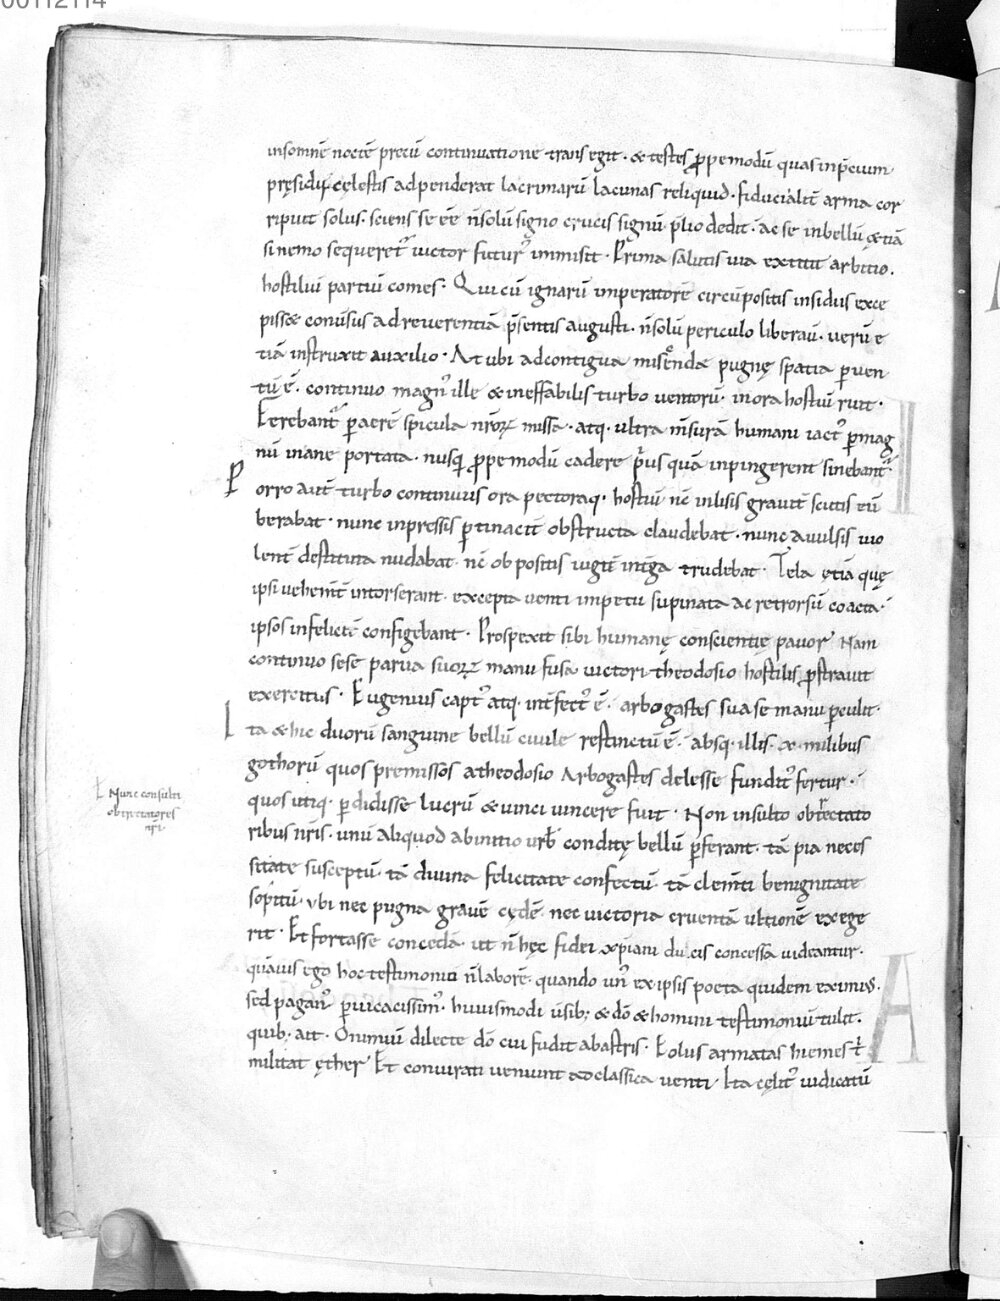 00112114
insomnē noctē precū continuatione transegit · & testes ꝓpemodū quas inp̄cium
pręsidii cęlestis adpenderat lacrimarū lacunas reliquid · fiducialit̄ arma cor
ripuit solus · sciens se eē n̄ solū signo crucis signū p̄lio dedit · ac se inbellū ętiā
si nemo sequeret᷑ uictor futur᷒ immisit · Prima salutis uia extitit arbitio ·
hostiliū partiū comes · Qui cū ignarū imperatorē circūpositis insidiis exce
pisset conuersus ad reuerentiā p̄sentis augusti · n̄ solū periculo liberaū · uerū e
tiā instruxit auxilio · At ubi ad contigua miscenda pugnę spatia ꝑuen
tū ē · continuo magn᷒ ille & ineffabilis turbo uentorū · in ora hostiū ruit ·
Ferebant᷑ ꝑ aerē spicula nr̄oꝝ missa · atq · ultra m̄surā humani iact᷒ ꝑ mag
nū inane portata · nusq ꝓpemodū cadere p̄us quā inpingerent sinebant᷑ ·
Porro aut̄ turbo continuus ora pectoraq · hostiū nc̄ inlisis grauit̄ scutis eū
berabat · nunc inpressis ꝑtinacit̄ obstructa claudebat · nunc auulsis uio
lent̄ destituta nudabat · nc̄ oppositis iugit̄ in t̄ga trudebat · Tela ętiā quę
ipsi uehem̄t̄ intorserant · excepta uenti impetu supinata ac retrorsū coacta ·
ipsos infelicit̄ configebant · Prospexit sibi humanę conscientię pauor Nam
continuo sese parua suoꝝ manu fusa uictori theodosio hostilis ꝓstrauit
exercitus · Eugenius capt᷒ atq · int̄fect᷒ ē · arbogastes sua se manu ꝑculit ·
Ita & hic duorū sanguine bellū ciuile restinctū ē · absq · illis · x · milibus
gothorū quos premissos a theodosio Arbogastes delesse fundit᷒ fertur ·
quos utiq · ꝑdidisse lucrū & uinci uincere fuit · Non insulto obtrectato
ribus nr̄is · unū aliquod ab initio urb̄ conditę bellū ꝓferant · tā pia neces
sitate susceptū · tā diuina felicitate confectū · tā clem̄ti benignitate
sopitū · ubi nec pugna grauē cędē nec uictoria cruentā ultionē exege
rit · Et fortasse concedā · ut n̄ hęc fidei xp̄iani ducis concessa uideantur ·
quāuis ego hoc testimoniū n̄ laborē · quando un᷒ ex ipsis poeta quidem eximi᷒ ·
sed pagan᷒ ꝑuicacissim᷒ · huiusmodi ūsib; & dō & homini testimoniū tulit ·
quib · ait · O nimiū dilecte dō cui fudit ab astris · Eolus armatas hiemes t̄
militat ęther Et coniurati ueniunt ad classica uenti Ita cęlit᷒ iudicatū
Nunc consulti
obtrectatores
nr̄i ·